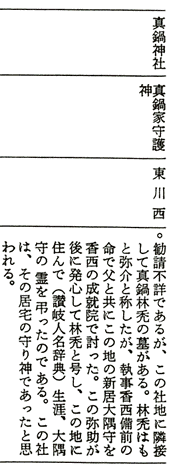 真鍋神社
真鍋家守護
神
東川西
。勧請不詳であるが、この社地に隣接
して真鍋林禿の墓がある。林禿はも
と弥介と称したが、執事香西備前の
命で父と共にこの地の新居大隅守を
香西の成就院で討った。この弥助が
後に発心して林禿と号し、この地に
住んで（讃岐人名辞典）生涯、大隅
守の霊を弔ったのである。この社
は、その居宅の守り神であったと思
われる。